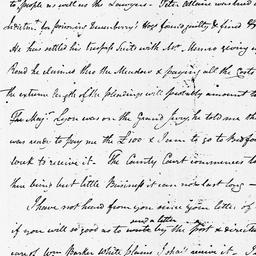 to people as well as the Lawyers. Peter Allaire was tried
Indictmt. for poisoning Quenberry's Hogs found guilty & fined $
He has settled his trespass suits with Mr. Munro giving u
Road he claimed thro the Meadow & paying all the Costs
the extreme length of the pleadings will probably amount to
The Majr. Lyon was on the Grand Jury, he told me th
was ready to pay me the £100 & I am to go to Bedfor
week to receive it. The County Court commences to
then being but little Business it can not last long —
I have not heard from you since your letter of
send a letter
if you will so good as to write by the post & direct
care of Wm Barker White plains I shall receive it — I